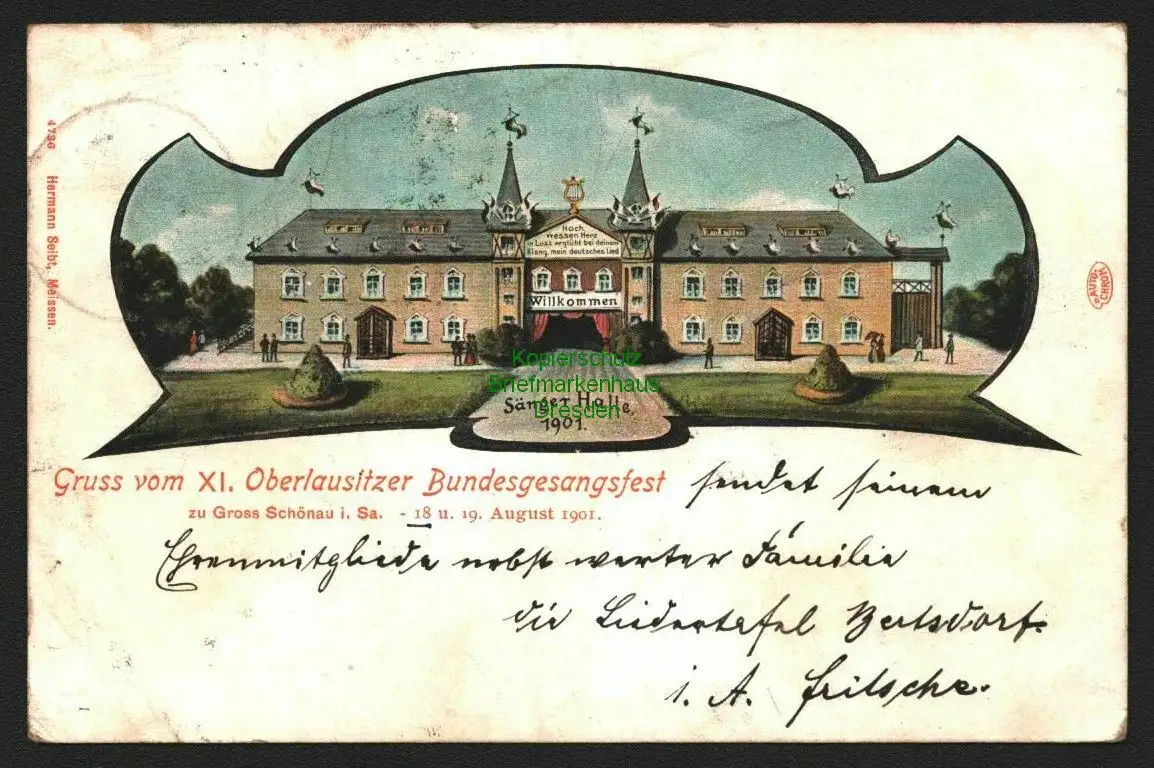 4736 Hermann Seibt, Meissen.
AUTO-CHROM
Hoch
wessen Herz
in Lust erglüht bei deinem
Klang, mein deutsches Lied
Willkommen
Kopierschutz
Briefmarkenhaus
Dresden
Sänger Halle,
1901.
Gruss vom XI. Oberlausitzer Bundesgesangsfest
zu Gross Schönau i. Sa. - 18 u. 19. August 1901.
sendet seinem
Ehrenmitgliede nebst werter Familie
die Liedertafel Bertsdorf.
i. A. Fritsche.